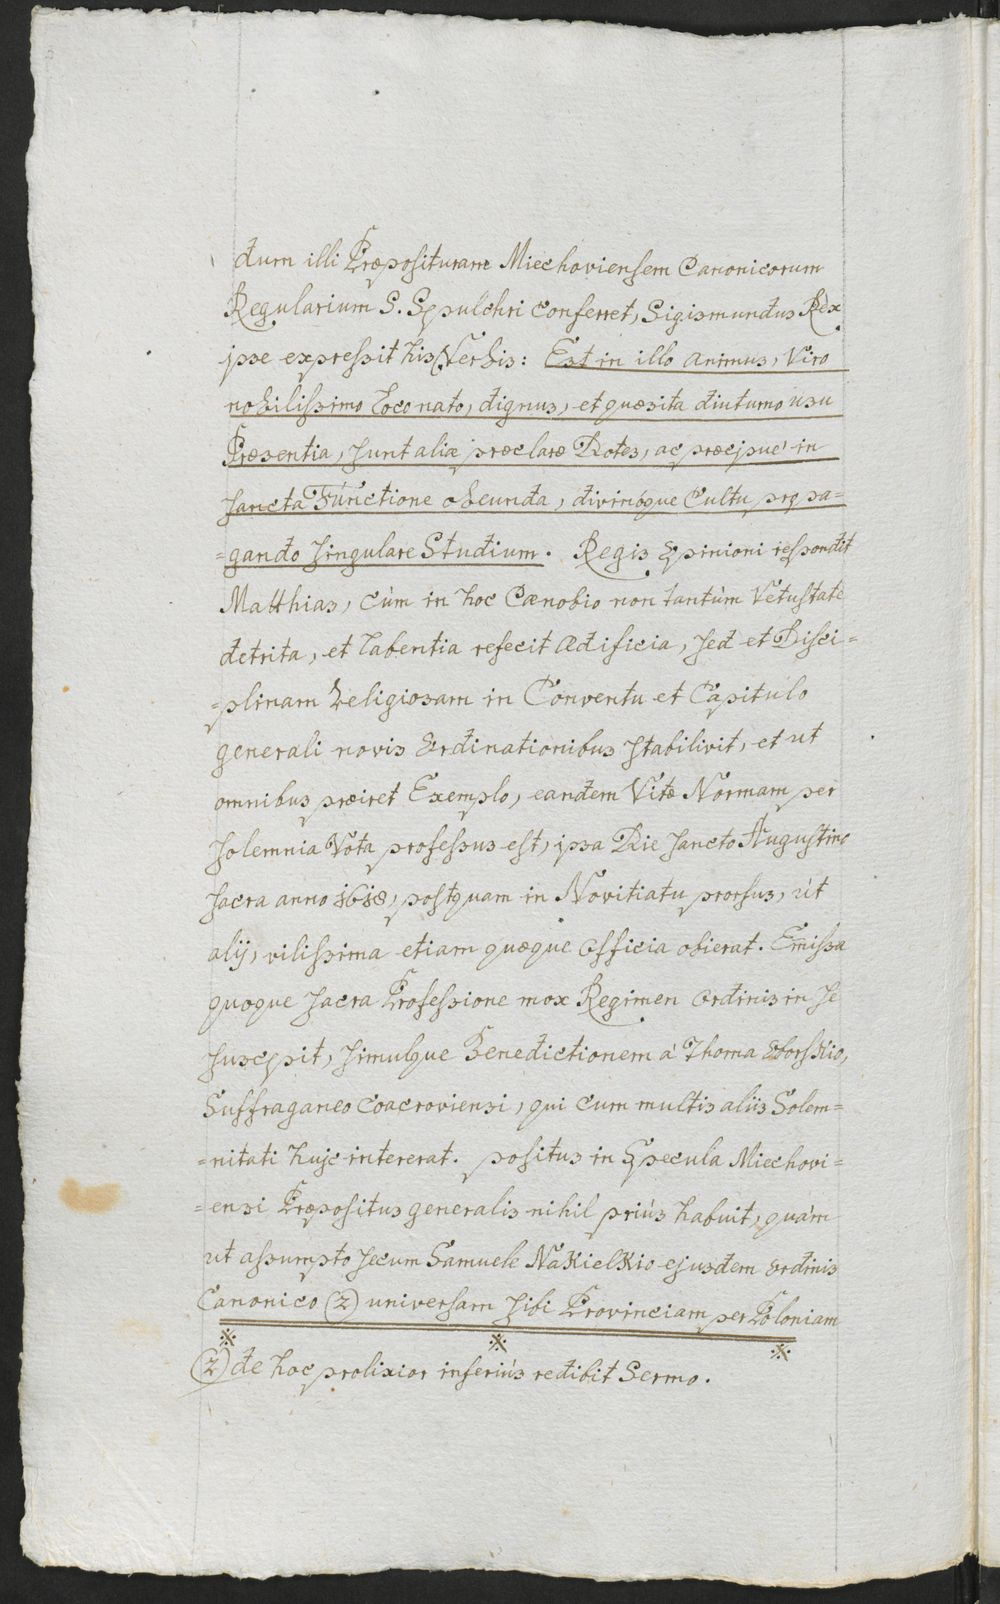 dum illi Præposituram Miechoviensem Canonicorum
Regularium S. Sepulchri conferret, Sigismundus Rex
ipse expressit his Verbis: Est in illo animus, Viro
nobilissimo Loco nato, dignus, et quæsita diuturno usu
Præsentia, sunt aliæ præclaræ Dotes, ac præcipuè in
sancta Functione obeunda, divinoque Cultu propa=
=gando singulare Studium. Regis Opinioni respondit
Matthias, cùm in hoc Cænobio non tantùm Vetustate
detrita, et labentia refecit Ædificia, sed et Disci=
=plinam Religiosam in Conventu et Capitulo
generali novis Ordinationibus stabilivit, et ut
omnibus præiret Exemplo, eandem Vitæ Normam per
solemnia Vota professus est, ipsa Die sancto Augustino
sacra anno 1618, postquam in Novitiatu prorsus, ut
alij, vilissima etiam quæque Officia obierat. Emissa
quoque sacra Professione mox Regimen Ordinis in se
suscepit, simulque Benedictionem à Thoma
Suffraganeo Coacroviensi, qui cum multis aliis Solem=
=nitati huic intererat. positus in Specula Miechovi=
=ensi Præpositus generalis nihil priùs habuit, quàm
ut assumpto secum Samuele Nakielkio ejusdem Ordinis
Canonico (z) universam sibi Provinciam per Poloniam
(z) de hoc prolixior inferiùs redibit Sermo.